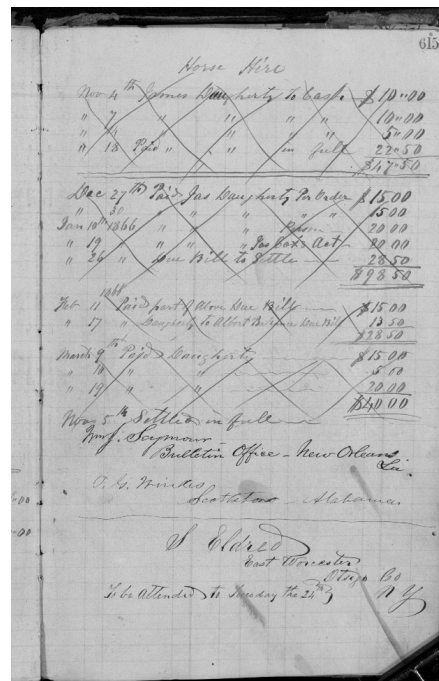 615
Horse Hire
Nov 4th James Daugherty to Cash $10"00
" 7 " " " " 10"00
" 9 " " " " 5"00
" 18 Paid " " in full 22"50
$47"50
Dec 27th Paid Jas Daugherty Per Order $15.00
" 30 " " " " 15.00
Jan 10th 1866 " " " 20.00
" 19 " " " Jas Act 20.00
" 26 " Due Bill to Settle 28.50
$98.50
Feb 11 1866 Paid part of Above Due Bill $15.00
" 17 " Daugherty to Albert Due Bill 13.50
$28.50
March 9th Paid Daugherty $15.00
" " " 5.00
" 19 " " 20.00
$40.00
Nov 5th Settled in full
Wm J. Seymour
Bulletin Office - New Orleans
La.
T. G. Windes
Scottsboro Alabama
S Eldred
East Worcester
Otsego Co
N Y
To be Attended to Tuesday the 24th